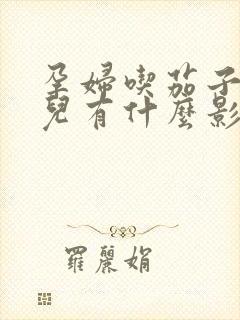 孕婦喫茄子
兒有什麼影
羅麗娟